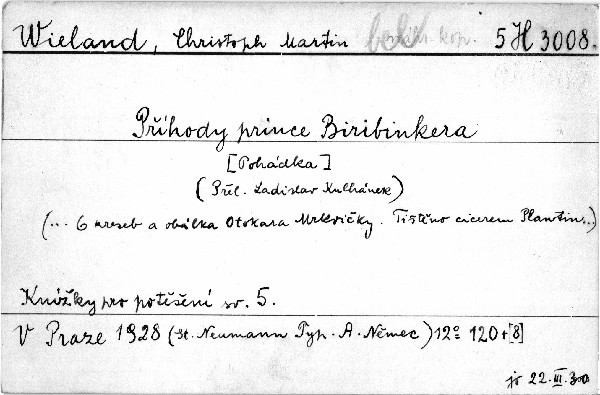 Wieland, Christoph Martin 5 H 3008.
Příhody prince Biribinkera
[Pohádka]
(Přel. Ladislav Kulhánek)
(... 6 kreseb a obálka Otokara Mrkvičky. Tištěno cicerem Plantin...)
Knížky pro potěšení sv. 5.
V Praze 1928 (St. Neumann Typ. A. Němec) 12° 120+[8]
jr 22.III.30